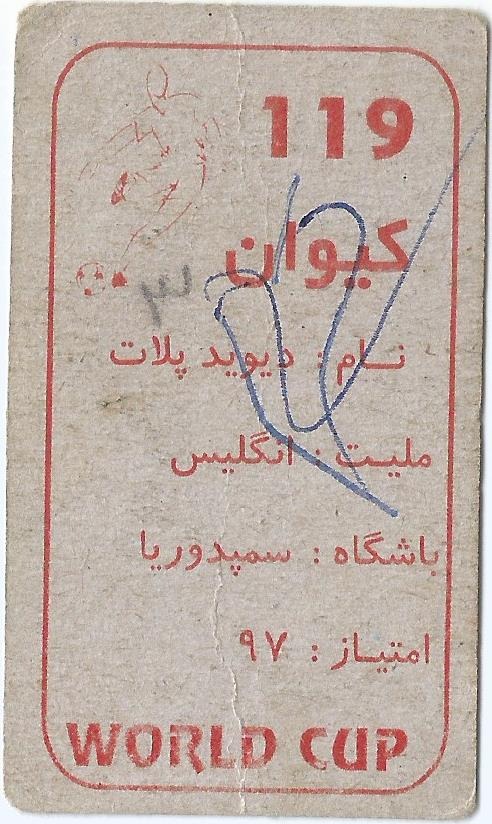 119
کیوان
۳
نام : دیوید پلات
ملیت : انگلیس
باشگاه : سمپدوریا
امتیاز : ۹۷
WORLD CUP